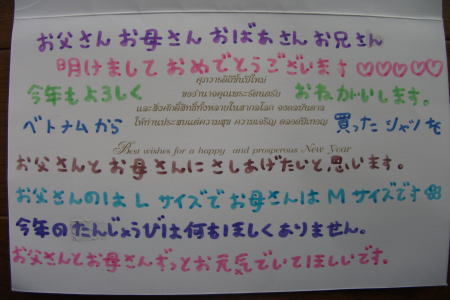 お父さん お母さん おばあさん お兄さん
明けまして おめでとうございます♡♡♡♡♡
ศุภวารดิถีขึ้นปีใหม่
今年もよろしく
ขออำนาจคุณพระรัตนตรัย
おねがいします。
และสิ่งศักดิ์สิทธิ์ทั้งหลายในสากลโลก จงดลบันดาล
ベトナムから
ให้ท่านประสบแต่ความสุข ความเจริญ ตลอดปีเทอญ
買ったシャツを
Best wishes for a happy and prosperous New Year
お父さんとお母さんにさしあげたいと思います。
お父さんのは L サイズで お母さんは M サイズです
今年のたんじょうびは何もほしくありません。
お父さんとお母さんずっとお元気でいてほしいです。